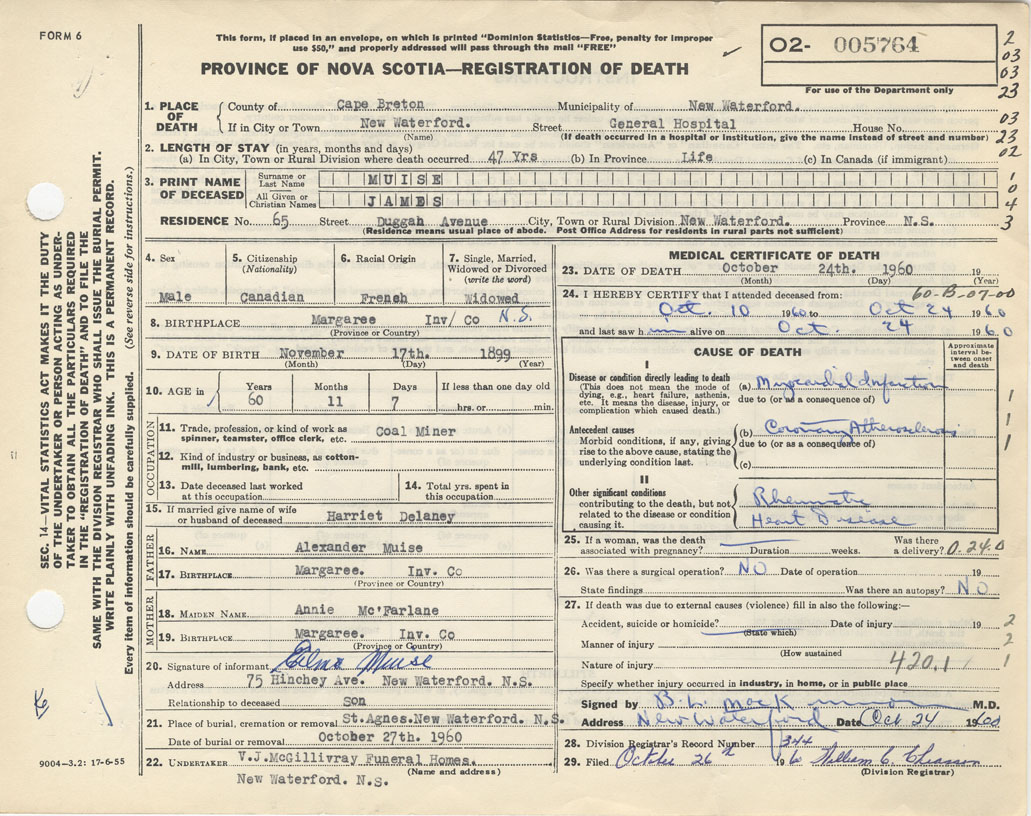 FORM 6
This form, if placed in an envelope, on which is printed "Dominion Statistics—Free, penalty for improper
use $50," and properly addressed will pass through the mail "FREE"
PROVINCE OF NOVA SCOTIA—REGISTRATION OF DEATH
O2- 005764
For use of the Department only
2
03
03
23
03
23
02
1
0
4
3
SEC. 14—VITAL STATISTICS ACT MAKES IT THE DUTY
OF THE UNDERTAKER OR PERSON ACTING AS UNDER-
TAKER TO OBTAIN ALL THE PARTICULARS REQUIRED
IN THE "REGISTRATION OF DEATH" AND TO FILE THE
SAME WITH THE DIVISION REGISTRAR WHO SHALL ISSUE THE BURIAL PERMIT.
WRITE PLAINLY WITH UNFADING INK. THIS IS A PERMANENT RECORD.
Every item of information should be carefully supplied. (See reverse side for instructions.)
1. PLACE OF DEATH County of Cape Breton Municipality of New Waterford.
If in City or Town New Waterford. Street General Hospital House No.
(Name) (If death occurred in a hospital or institution, give the name instead of street and number)
2. LENGTH OF STAY (in years, months and days)
(a) In City, Town or Rural Division where death occurred 47 Yrs (b) In Province Life (c) In Canada (if immigrant)
3. PRINT NAME OF DECEASED Surname or Last Name MUISE
All Given or Christian Names JAMES
RESIDENCE No. 65 Street Duggah Avenue City, Town or Rural Division New Waterford. Province N.S.
(Residence means usual place of abode. Post Office Address for residents in rural parts not sufficient)
4. Sex 5. Citizenship (Nationality) 6. Racial Origin 7. Single, Married, Widowed or Divorced (write the word)
Male Canadian French Widowed
8. BIRTHPLACE Margaree Inv/ Co N.S.
(Province or Country)
9. DATE OF BIRTH November 17th. 1899
(Month) (Day) (Year)
10. AGE in Years Months Days If less than one day old
60 11 7 hrs. or min.
OCCUPATION
11. Trade, profession, or kind of work as spinner, teamster, office clerk, etc. Coal Miner
12. Kind of industry or business, as cotton-mill, lumbering, bank, etc.
13. Date deceased last worked at this occupation
14. Total yrs. spent in this occupation
15. If married give name of wife or husband of deceased Harriet Delaney
FATHER
16. NAME Alexander Muise
17. BIRTHPLACE Margaree. Inv. Co
(Province or Country)
MOTHER
18. MAIDEN NAME Annie Mc'Farlane
19. BIRTHPLACE Margaree. Inv. Co
(Province or Country)
20. Signature of informant Muise
Address 75 Hinchey Ave. New Waterford. N.S.
Relationship to deceased son
21. Place of burial, cremation or removal St.Agnes.New Waterford. N.S.
Date of burial or removal October 27th. 1960
22. UNDERTAKER V.J.McGillivray Funeral Homes.
(Name and address)
New Waterford. N.S.
9004—3.2: 17-6-55
MEDICAL CERTIFICATE OF DEATH
23. DATE OF DEATH October 24th. 1960 19
(Month) (Day) (Year)
24. I HEREBY CERTIFY that I attended deceased from: 60-B-07-00
Oct. 10 1960 to Oct 24 1960
and last saw h im alive on Oct. 24 1960
CAUSE OF DEATH
Approximate interval between onset and death
I
Disease or condition directly leading to death
(This does not mean the mode of dying, e.g., heart failure, asthenia, etc. It means the disease, injury, or complication which caused death.)
(a) Myocardial Infarction
due to (or as a consequence of)
Antecedent causes
Morbid conditions, if any, giving rise to the above cause, stating the underlying condition last.
(b) Coronary Atherosclerosis
due to (or as a consequence of)
(c)
1
1
1
II
Other significant conditions
contributing to the death, but not related to the disease or condition causing it.
Rheumatic
Heart Disease
25. If a woman, was the death associated with pregnancy? Duration weeks. Was there a delivery? 0.24.0
26. Was there a surgical operation? NO Date of operation 19
State findings Was there an autopsy? NO
27. If death was due to external causes (violence) fill in also the following:—
Accident, suicide or homicide? Date of injury 19 2
(State which)
Manner of injury 2
(How sustained)
Nature of injury 420.1 1
Specify whether injury occurred in industry, in home, or in public place
Signed by M.D.
Address New Waterford Date Oct 24 1960
28. Division Registrar's Record Number 344
29. Filed October 26th 196 William C. Chiasson
(Division Registrar)